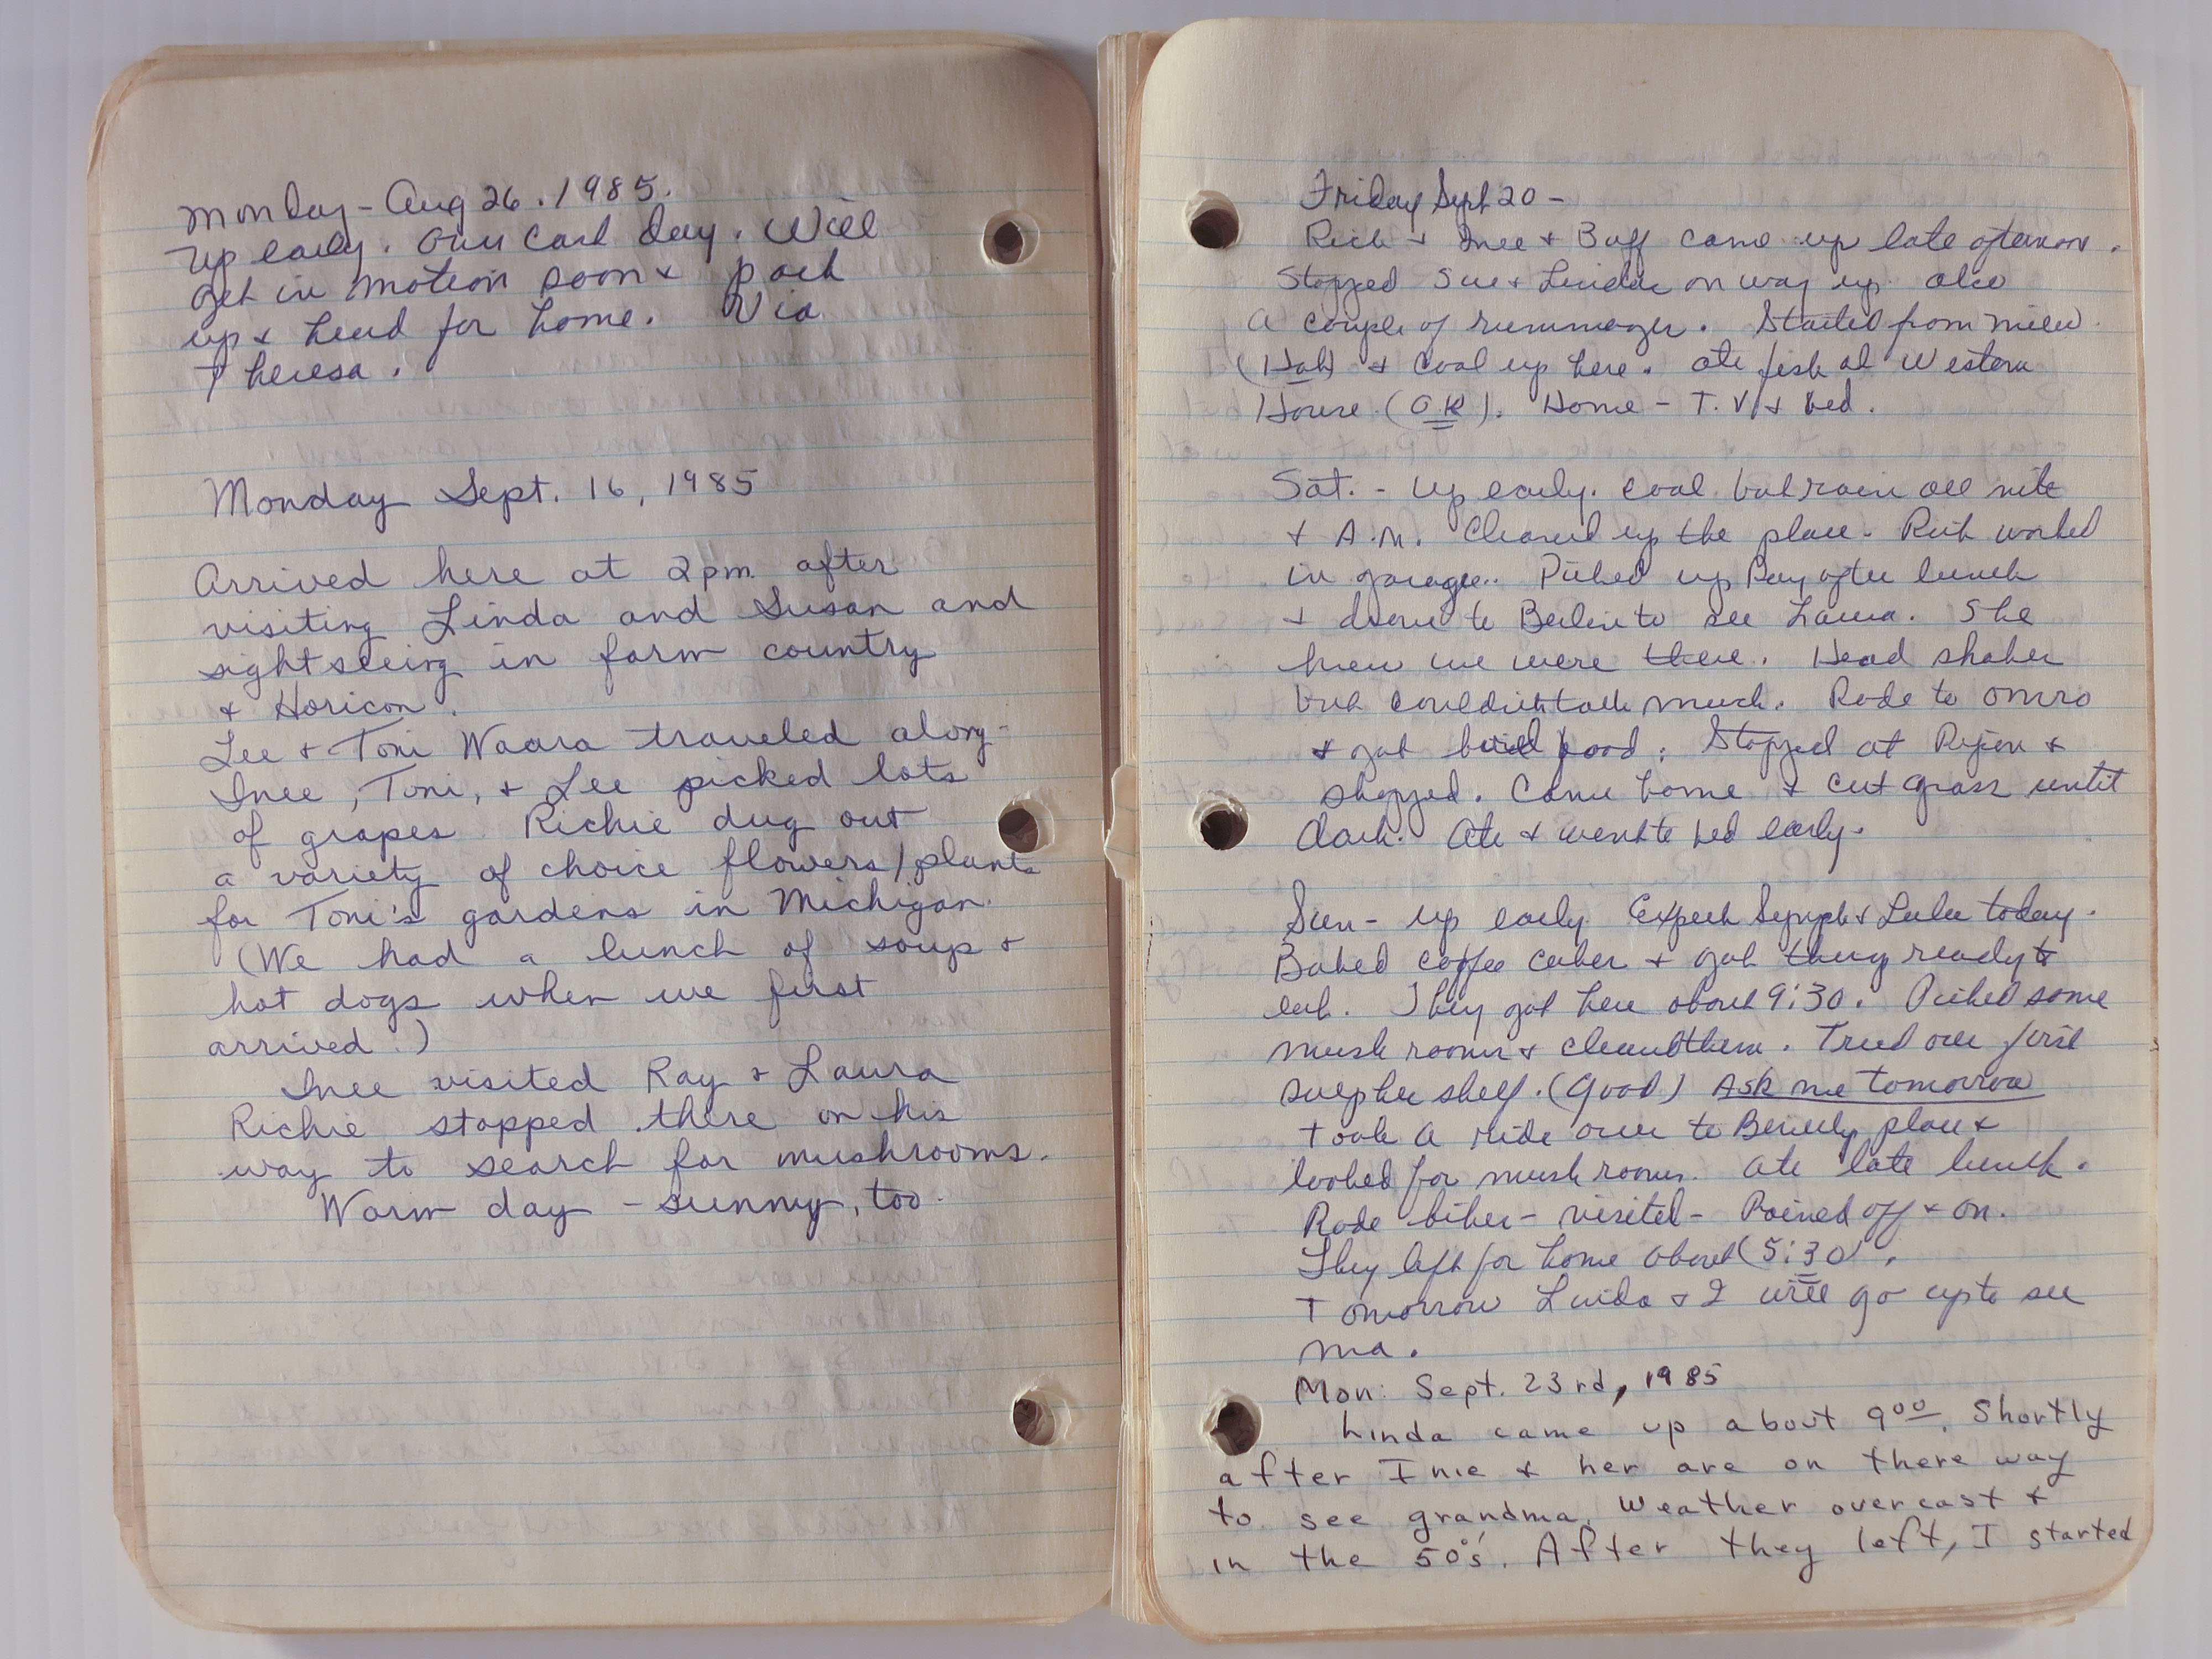 Monday - Aug 26. 1985.
Up early. Our last day. Will
get in motion soon & pack
up & head for home. Via
Theresa.
Monday Sept. 16, 1985
Arrived here at 2pm after
visiting Linda and Susan and
sightseeing in farm country
& Horicon.
Lee & Toni Waara traveled along-
Inee, Toni, & Lee picked lots
of grapes. Richie dug out
a variety of choice flowers/plants
for Toni's gardens in Michigan.
(We had a lunch of soup &
hot dogs when we first
arrived.)
Inee visited Ray & Laura
Richie stopped there on his
way to search for mushrooms.
Warm day - sunny, too.
Friday Sept 20 -
Rich & Inee & Buff came up late afternoon.
Stopped Sue & Linda on way up also
a couple of rummages. Started from Milw.
(Hot) & cool up here. Ate fish at Western
House (OK). Home - T.V. & bed.
Sat. - Up early. Cool but rain all nite
& A.M. Cleaned up the place. Rich worked
in garage. Picked up Ray after lunch
& drove to Berlin to see Laura. She
knew we were there. Head shakes
but couldn't talk much. Rode to Omro
& got bird food. Stopped at Ripon &
shopped. Came home & cut grass until
dark. Ate & went to bed early.
Sun - up early Expect Symph & Lulu today.
Baked coffee cakes & got things ready to
eat. They got here about 9:30. Picked some
mushrooms & cleaned them. Tried our first
sulpher shelf. (good) Ask me tomorrow
Took a ride over to Beverly place &
looked for mushrooms. Ate late lunch.
Rode bikes - visited - Rained off & on.
They left for home about (5:30).
Tomorrow Linda & I will go up to see
ma.
Mon: Sept. 23rd, 1985
Linda came up about 9:00. Shortly
after Inie & her are on there way
to see grandma. Weather overcast &
in the 50°s'. After they left, I started